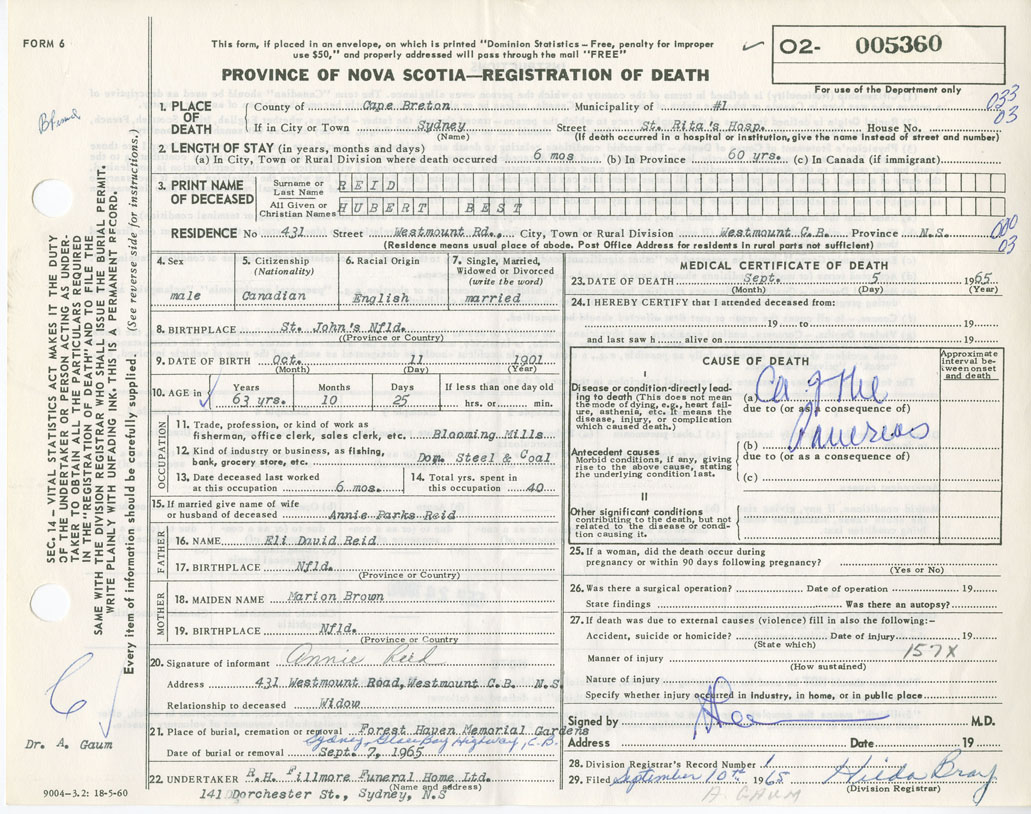 FORM 6
This form, if placed in an envelope, on which is printed "Dominion Statistics – Free, penalty for improper
use $50," and properly addressed will pass through the mail "FREE"
PROVINCE OF NOVA SCOTIA—REGISTRATION OF DEATH
02- 005360
For use of the Department only
033
03
1. PLACE OF DEATH
County of Cape Breton Municipality of #1
If in City or Town Sydney Street St. Rita's Hosp. House No.
(Name) (If death occurred in a hospital or institution, give the name instead of street and number)
2. LENGTH OF STAY (in years, months and days)
(a) In City, Town or Rural Division where death occurred 6 mos (b) In Province 60 yrs. (c) In Canada (if immigrant)
3. PRINT NAME OF DECEASED
Surname or Last Name REID
All Given or Christian Names HUBERT BEST
RESIDENCE No 431 Street Westmount Rd., City, Town or Rural Division Westmount C.B. Province N.S.
(Residence means usual place of abode. Post Office Address for residents in rural parts not sufficient)
03
4. Sex
male
5. Citizenship
(Nationality)
Canadian
6. Racial Origin
English
7. Single, Married,
Widowed or Divorced
(write the word)
married
8. BIRTHPLACE St. John's Nfld.
((Province or Country)
9. DATE OF BIRTH Oct. 11 1901
(Month) (Day) (Year)
10. AGE in
Years Months Days If less than one day old
63 yrs. 10 25 hrs. or min.
OCCUPATION
11. Trade, profession, or kind of work as
fisherman, office clerk, sales clerk, etc. Blooming Mills
12. Kind of industry or business, as fishing,
bank, grocery store, etc. Dom. Steel & Coal
13. Date deceased last worked
at this occupation 6 mos.
14. Total yrs. spent in
this occupation 40
15. If married give name of wife
or husband of deceased Annie Parks Reid
FATHER
16. NAME Eli David Reid
17. BIRTHPLACE Nfld.
(Province or Country)
MOTHER
18. MAIDEN NAME Marion Brown
19. BIRTHPLACE Nfld.
(Province or Country
20. Signature of informant Annie Reid
Address 431 Westmount Road, Westmount C.B. N.S.
Relationship to deceased Widow
21. Place of burial, cremation or removal Forest Haven Memorial Gardens
Sydney Glace Bay Highway, C.B.
Date of burial or removal Sept. 7, 1965
22. UNDERTAKER R.H. Fillmore Funeral Home Ltd.
(Name and address)
141 Dorchester St., Sydney, N.S
MEDICAL CERTIFICATE OF DEATH
23. DATE OF DEATH Sept. 5 1965
(Month) (Day) (Year)
24. I HEREBY CERTIFY that I attended deceased from:
19 to 19
and last saw h alive on 19
CAUSE OF DEATH
Approximate
interval be-
tween onset
and death
I
Disease or condition directly lead-
ing to death (This does not mean
the mode of dying, e.g., heart fail-
ure, asthenia, etc. It means the
disease, injury, or complication
which caused death.)
(a) Ca of the
due to (or as a consequence of)
Pancreas
(b)
due to (or as a consequence of)
(c)
Antecedent causes
Morbid conditions, if any, giving
rise to the above cause, stating
the underlying condition last.
II
Other significant conditions
contributing to the death, but not
related to the disease or condi-
tion causing it.
25. If a woman, did the death occur during
pregnancy or within 90 days following pregnancy?
(Yes or No)
26. Was there a surgical operation? Date of operation 19
State findings Was there an autopsy?
27. If death was due to external causes (violence) fill in also the following:–
Accident, suicide or homicide? Date of injury 19
(State which)
157X
Manner of injury
(How sustained)
Nature of injury
Specify whether injury occurred in industry, in home, or in public place
Signed by M.D.
Address Date 19
28. Division Registrar's Record Number 1
29. Filed September 10th 1965 Hilda Bray
(Division Registrar)
A. GAUM
SEC. 14 – VITAL STATISTICS ACT MAKES IT THE DUTY
OF THE UNDERTAKER OR PERSON ACTING AS UNDER-
TAKER TO OBTAIN ALL THE PARTICULARS REQUIRED
IN THE "REGISTRATION OF DEATH" AND TO FILE THE
SAME WITH THE DIVISION REGISTRAR WHO SHALL ISSUE THE BURIAL PERMIT.
WRITE PLAINLY WITH UNFADING INK. THIS IS A PERMANENT RECORD.
Every item of information should be carefully supplied. (See reverse side for instructions.)
Dr. A. Gaum
9004-3.2: 18-5-60